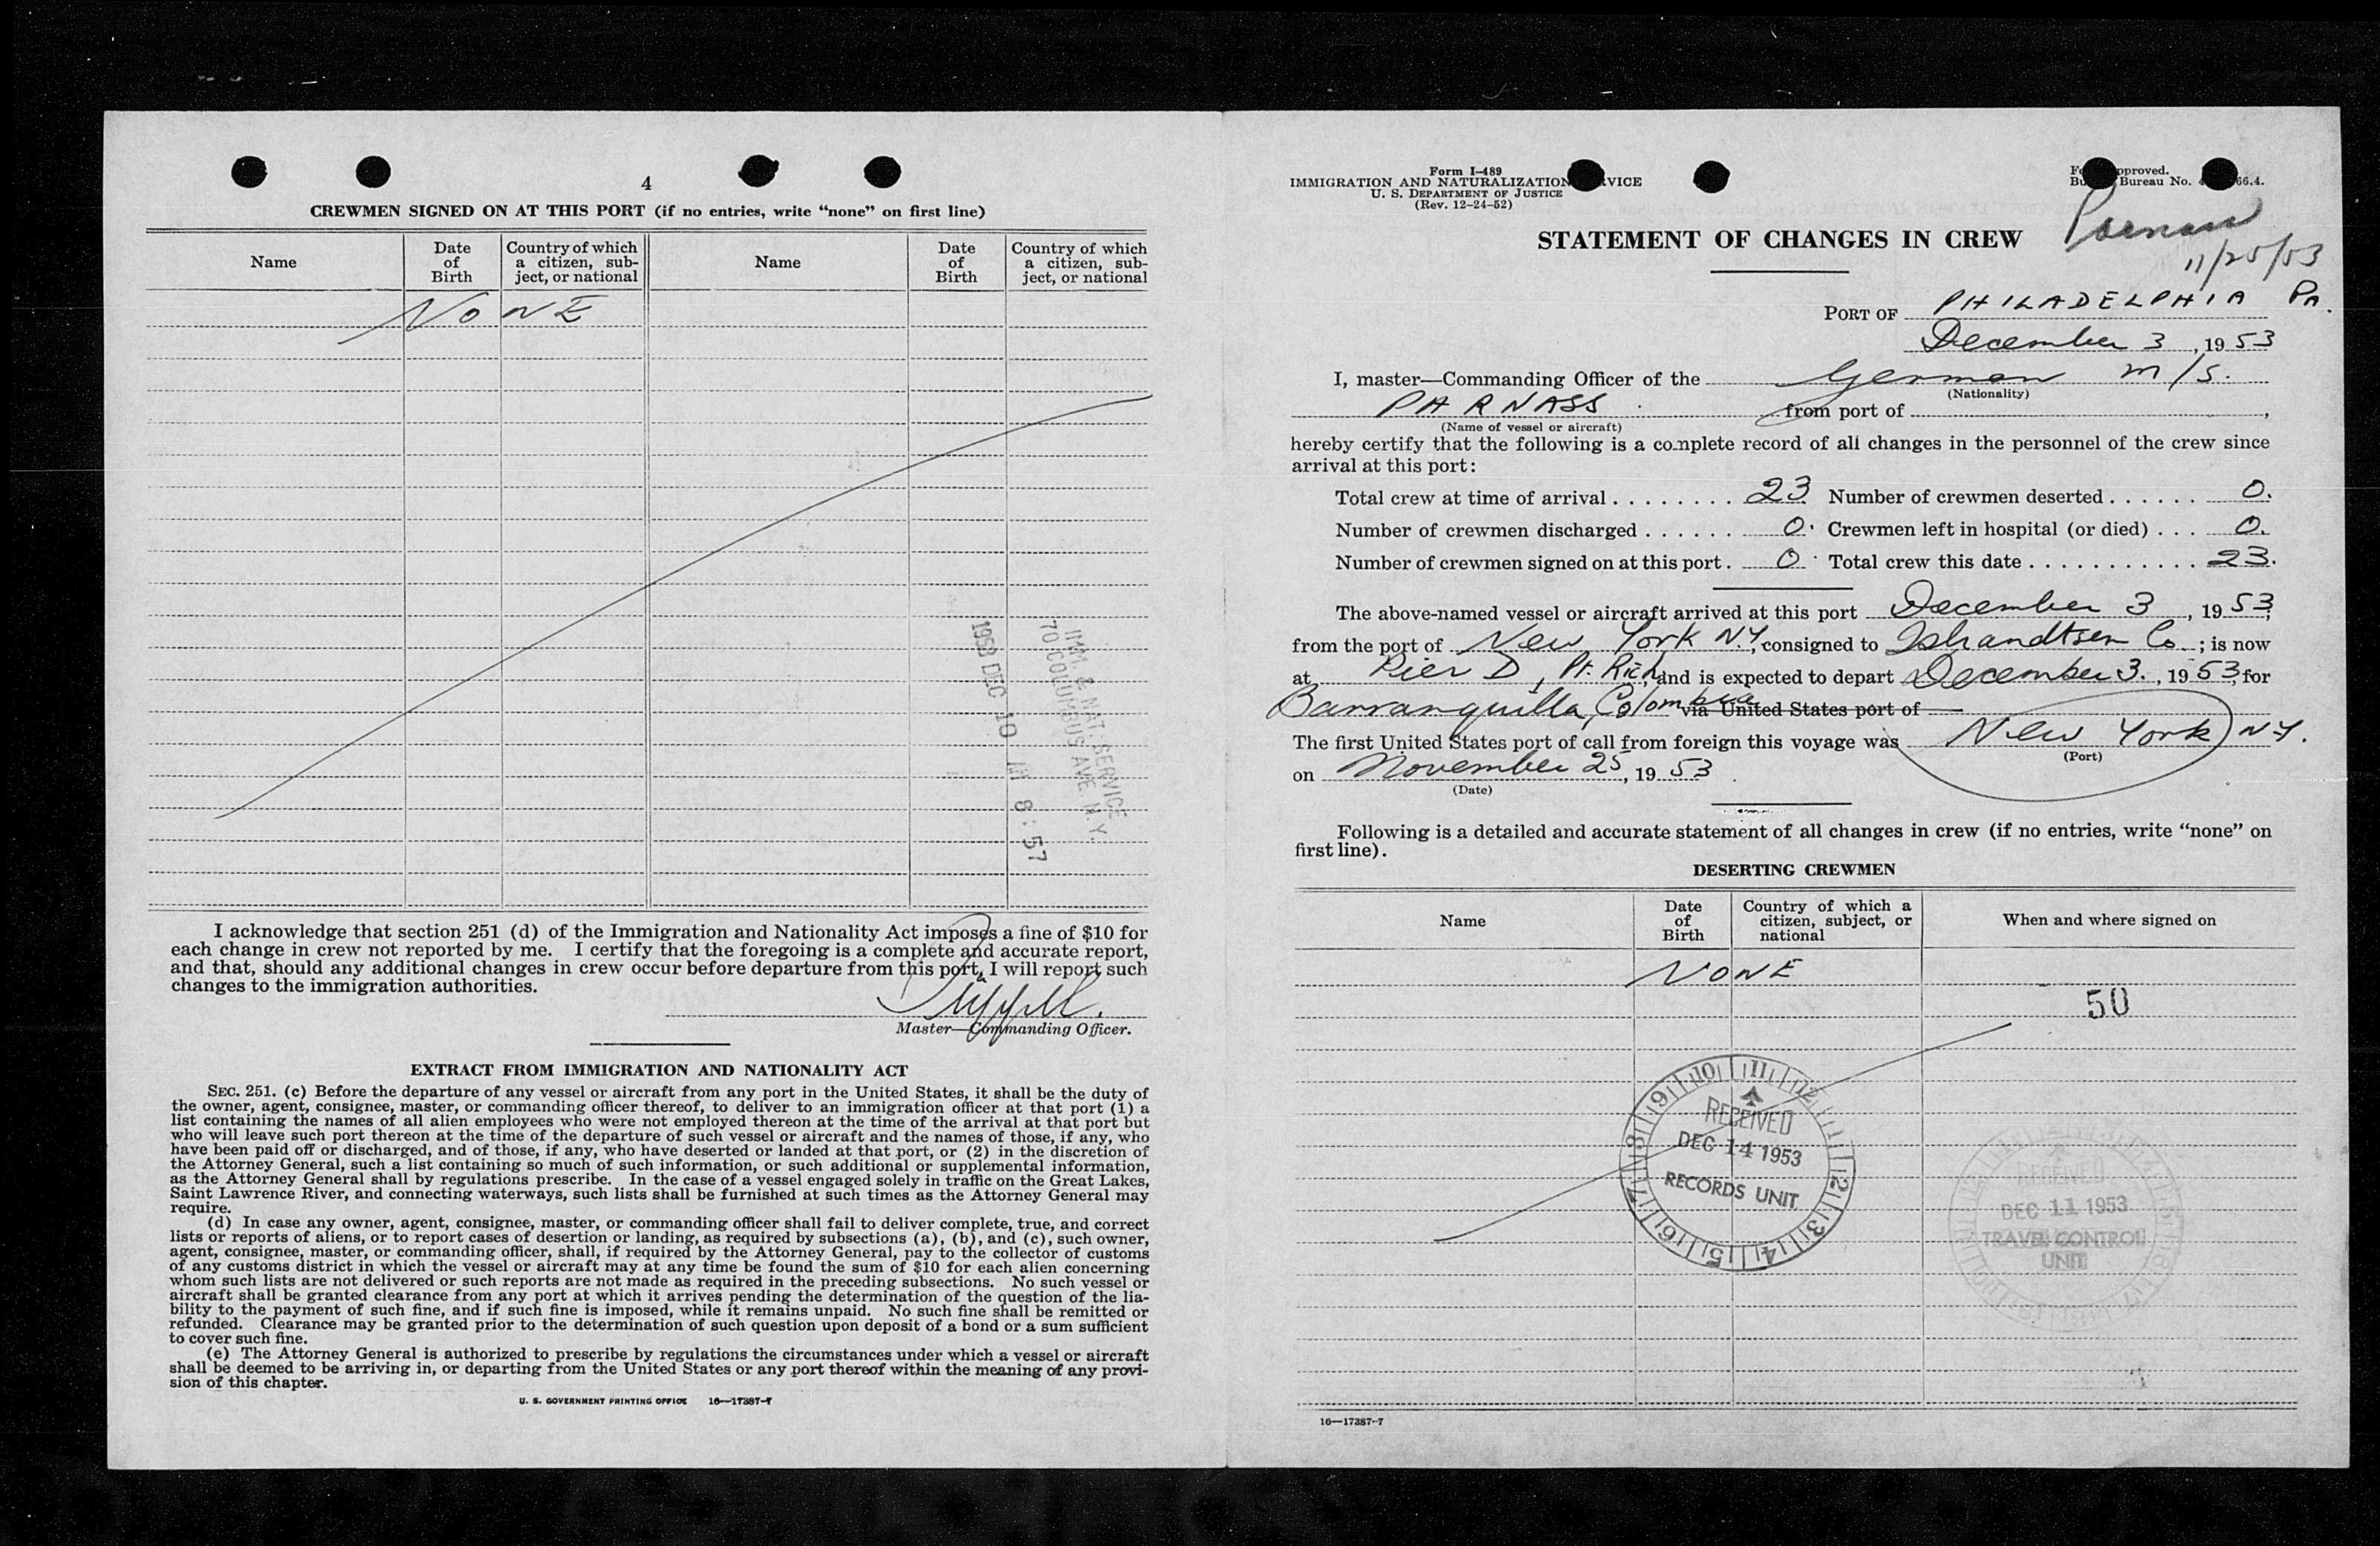 4
CREWMEN SIGNED ON AT THIS PORT (if no entries, write “none” on first line)
Name
Date of Birth
Country of which a citizen, sub-
ject, or national
Name
Date of Birth
Country of which a citizen, sub-
ject, or national
NONE
IMM. & NAT. SERVICE
70 COLUMBUS AVE N.Y.
1953 DEC 10 AM 8:57
I acknowledge that section 251 (d) of the Immigration and Nationality Act imposes a fine of $10 for
each change in crew not reported by me. I certify that the foregoing is a complete and accurate report,
and that, should any additional changes in crew occur before departure from this port, I will report such
changes to the immigration authorities.
Master—Commanding Officer.
EXTRACT FROM IMMIGRATION AND NATIONALITY ACT
SEC. 251. (c) Before the departure of any vessel or aircraft from any port in the United States, it shall be the duty of
the owner, agent, consignee, master, or commanding officer thereof, to deliver to an immigration officer at that port (1) a
list containing the names of all alien employees who were not employed thereon at the time of the arrival at that port but
who will leave such port thereon at the time of the departure of such vessel or aircraft and the names of those, if any, who
have been paid off or discharged, and of those, if any, who have deserted or landed at that port, or (2) in the discretion of
the Attorney General, such a list containing so much of such information, or such additional or supplemental information,
as the Attorney General shall by regulations prescribe. In the case of a vessel engaged solely in traffic on the Great Lakes,
Saint Lawrence River, and connecting waterways, such lists shall be furnished at such times as the Attorney General may
require.
(d) In case any owner, agent, consignee, master, or commanding officer shall fail to deliver complete, true, and correct
lists or reports of aliens, or to report cases of desertion or landing, as required by subsections (a), (b), and (c), such owner,
agent, consignee, master, or commanding officer, shall, if required by the Attorney General, pay to the collector of customs
of any customs district in which the vessel or aircraft may at any time be found the sum of $10 for each alien concerning
whom such lists are not delivered or such reports are not made as required in the preceding subsections. No such vessel or
aircraft shall be granted clearance from any port at which it arrives pending the determination of the question of the lia-
bility to the payment of such fine, and if such fine is imposed, while it remains unpaid. No such fine shall be remitted or
refunded. Clearance may be granted prior to the determination of such question upon deposit of a bond or a sum sufficient
to cover such fine.
(e) The Attorney General is authorized to prescribe by regulations the circumstances under which a vessel or aircraft
shall be deemed to be arriving in, or departing from the United States or any port thereof within the meaning of any provi-
sion of this chapter.
U. S. GOVERNMENT PRINTING OFFICE 16—17387-7
Form I-489
IMMIGRATION AND NATURALIZATION VICE
U. S. DEPARTMENT OF JUSTICE
(Rev. 12-24-52)
pproved.
Bureau No. 66.4.
11/25/53
STATEMENT OF CHANGES IN CREW
PORT OF PHILADELPHIA Pa.
December 3, 1953
I, master—Commanding Officer of the German m/s.
(Nationality)
PARNASS from port of ,
(Name of vessel or aircraft)
hereby certify that the following is a complete record of all changes in the personnel of the crew since
arrival at this port:
Total crew at time of arrival 23 Number of crewmen deserted 0.
Number of crewmen discharged 0. Crewmen left in hospital (or died) 0.
Number of crewmen signed on at this port. 0 Total crew this date 23.
The above-named vessel or aircraft arrived at this port December 3, 1953,
from the port of New York N.Y., consigned to Co.; is now
at Pier D, Pt. Rich, and is expected to depart December 3., 1953, for
Barranquilla, Colombia via United States port of
The first United States port of call from foreign this voyage was New York N.Y.
(Port)
on November 25, 1953.
(Date)
Following is a detailed and accurate statement of all changes in crew (if no entries, write “none” on
first line).
DESERTING CREWMEN
Name
Date of Birth
Country of which a citizen, subject, or national
When and where signed on
NONE
50
10 11 12 1 2 3 4 5 6 7 8 9
RECEIVED
DEC 14 1953
RECORDS UNIT
RECEIVED
DEC 11 1953
TRAVEL CONTROL
UNIT
16—17387-7